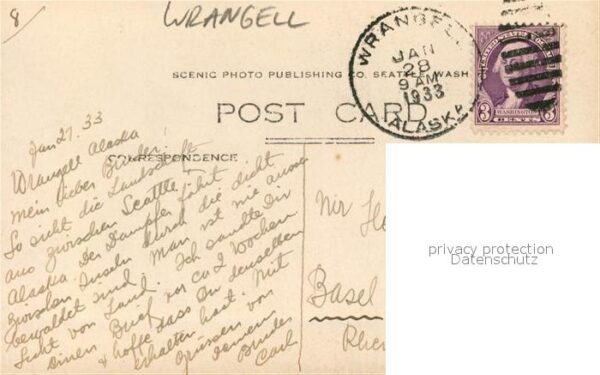 8
WRANGELL
WRANGELL
JAN
28
9 AM
1933
ALASKA
UNITED STATES
WASHINGTON
3 CENTS 3
SCENIC PHOTO PUBLISHING CO. SEATTLE, WASH
POST CARD
CORRESPONDENCE
Jan 27. 33
Wrangell Alaska
Mein lieber Bruder!
So sieht die Landschaft
aus zwischen Seattle &
Alaska. Der Dampfer fährt
zwischen Inseln durch die dicht
bewaldet sind. Man ist nie ausser
Sicht von Land. Ich sandte Dir
Einen Brief vor ca 2 Wochen
& hoffe dass Du denselben
erhalten hast. Mit
Grüssen von
Deinem
Bruder
Carl
Basel
privacy protection
Datenschutz